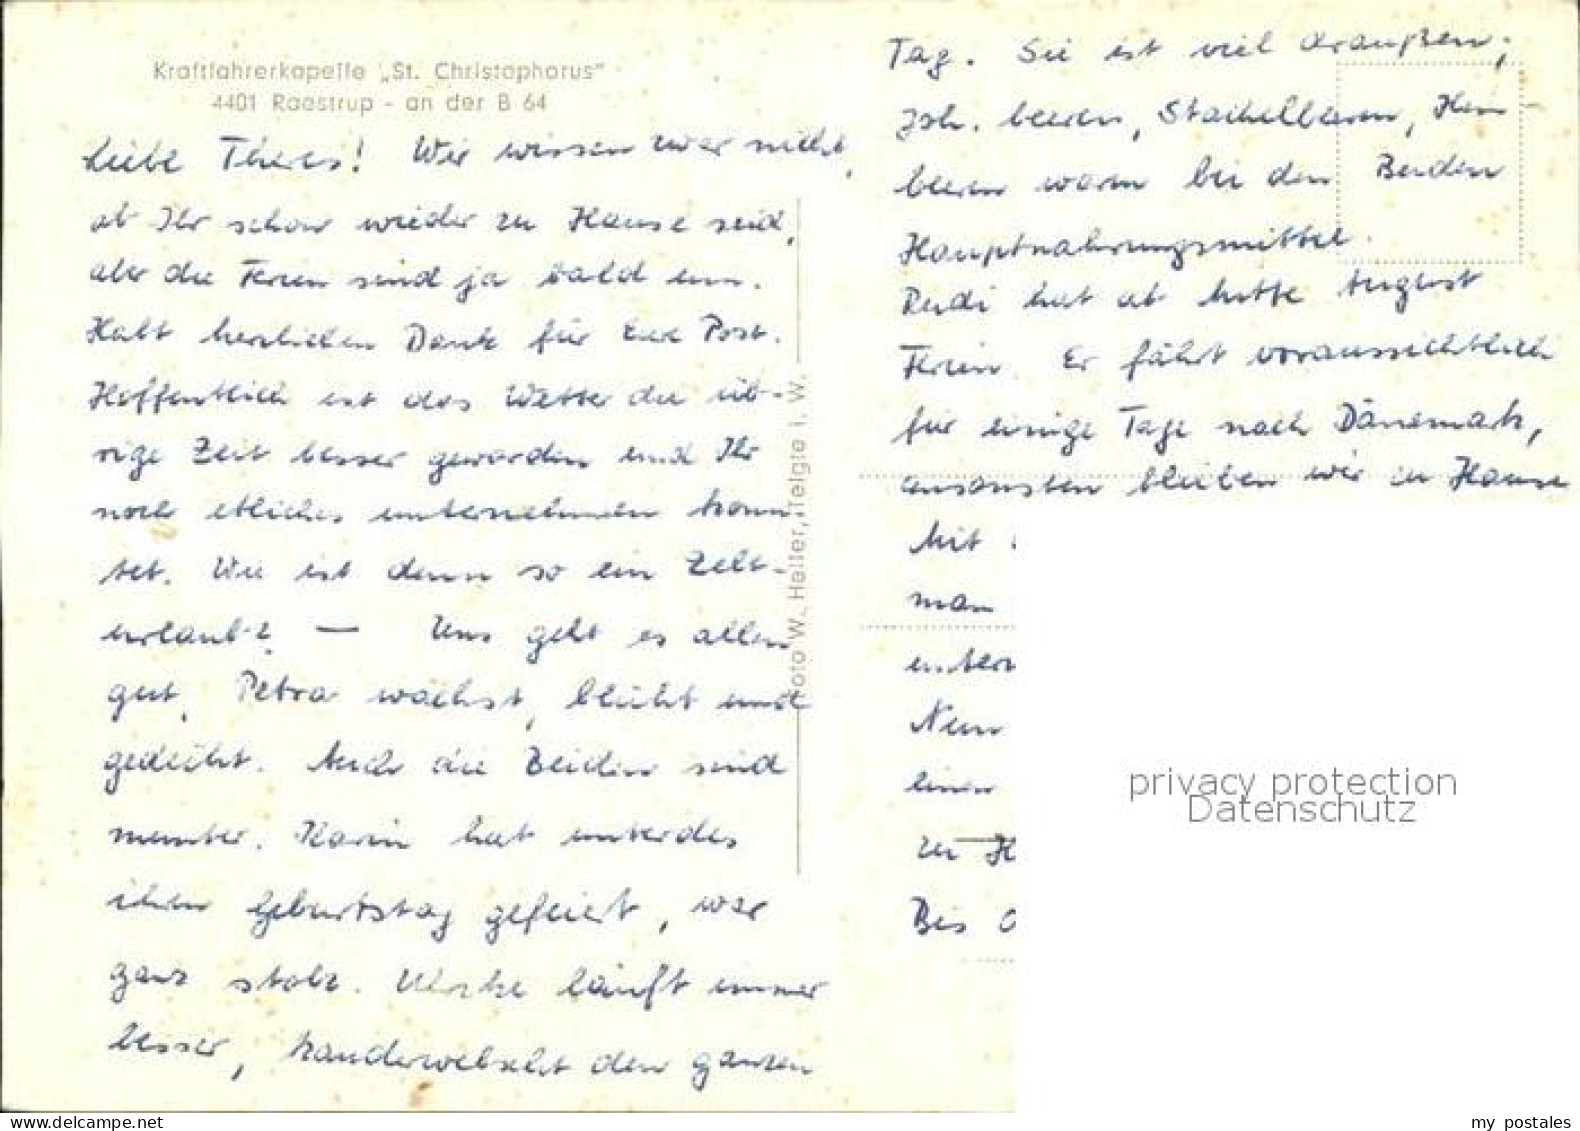 Kraftfahrerkapelle „St. Christophorus"
4401 Raestrup - an der B 64
Liebe Theres! Wir wissen zwar nicht,
ob Ihr schon wieder zu Hause seid,
aber die Ferien sind ja bald um.
Habt herzlichen Dank für Eure Post.
Hoffentlich ist das Wetter die üb-
rige Zeit besser geworden und Ihr
noch etliches unternehmen konn-
tet. Wie ist denn so ein Zelt-
urlaub? — Uns geht es allen
gut, Petra wächst, blüht und
gedeiht. Auch die Beiden sind
munter. Karin hat unterdes
ihren Geburtstag gefeiert, war
ganz stolz. Ulrike läuft immer
besser, kauderwelscht den ganzen
Foto W. Heller, Telgte i. W.
Tag. Sie ist viel draußen;
Joh. beeren, Stachelbeeren, Him
beeren waren bei den Beiden
Hauptnahrungsmittel.
Rudi hat ab Mitte August
Ferien. Er fährt voraussichtlich
für einige Tage nach Dänemark,
ansonsten bleiben wir zu Hause
Mit
man
untern
Nun
einen
zu H
Bis
privacy protection
Datenschutz
my postales